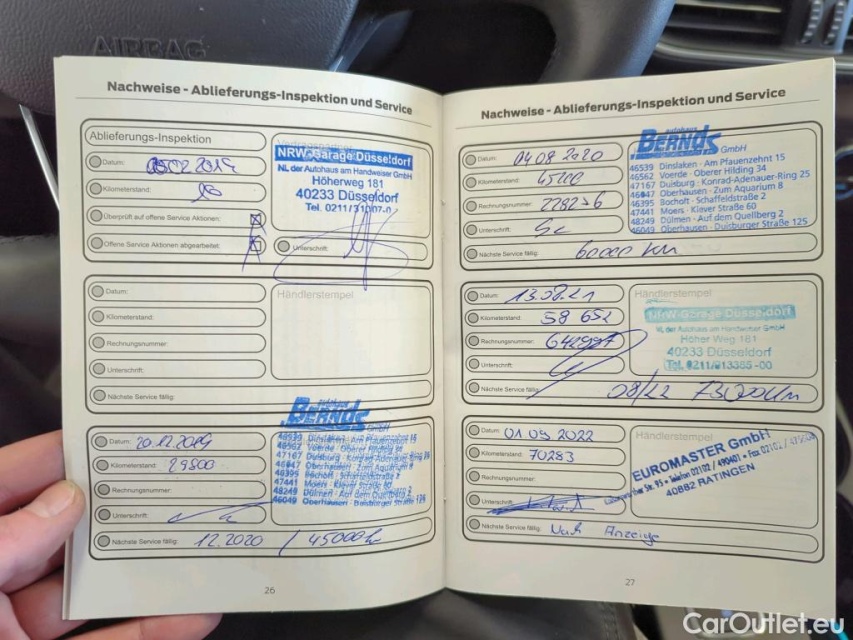 AIRBAG
Nachweise - Ablieferungs-Inspektion und Service
Ablieferungs-Inspektion
Datum: 05.02.2019
Kilometerstand:
Überprüft auf offene Service Aktionen:
Offene Service Aktionen abgearbeitet:
NRW-Garage Düsseldorf
NL der Autohaus am Handweiser GmbH
Höherweg 181
40233 Düsseldorf
Unterschrift:
Datum:
Kilometerstand:
Rechnungsnummer:
Unterschrift:
Nächste Service fällig:
Händlerstempel
Datum: 20.12.2019
Kilometerstand: 29800
Rechnungsnummer:
Unterschrift:
Nächste Service fällig: 12.2020 / 45000
autohaus
BERNDS
46539 Dinslaken · Am Pfauenzehnt 15
46562 Voerde · Oberer Hilding 34
47167 Duisburg · Konrad-Adenauer-Ring 25
46047 Oberhausen · Zum Aquarium 8
46395 Bocholt · Schaffeldstraße 2
47441 Moers · Klever Straße 60
48249 Dülmen · Auf dem Quellberg 2
46049 Oberhausen · Duisburger Straße 125
26
Nachweise - Ablieferungs-Inspektion und Service
Datum: 04.08.2020
Kilometerstand: 45200
Rechnungsnummer:
Unterschrift:
Nächste Service fällig: 60000 km
autohaus
BERNDS GmbH
46539 Dinslaken · Am Pfauenzehnt 15
46562 Voerde · Oberer Hilding 34
47167 Duisburg · Konrad-Adenauer-Ring 25
46047 Oberhausen · Zum Aquarium 8
46395 Bocholt · Schaffeldstraße 2
47441 Moers · Klever Straße 60
48249 Dülmen · Auf dem Quellberg 2
46049 Oberhausen · Duisburger Straße 125
Datum: 13.08.21
Kilometerstand: 58 652
Rechnungsnummer:
Unterschrift:
Nächste Service fällig: 08/22 73000 km
Händlerstempel
NRW-Garage Düsseldorf
NL der Autohaus am Handweiser GmbH
Höher Weg 181
40233 Düsseldorf
Datum: 01.09.2022
Kilometerstand: 70283
Rechnungsnummer:
Unterschrift:
Nächste Service fällig: Nach Anzeige
Händlerstempel
EUROMASTER GmbH
40882 RATINGEN
27
CarOutlet.eu